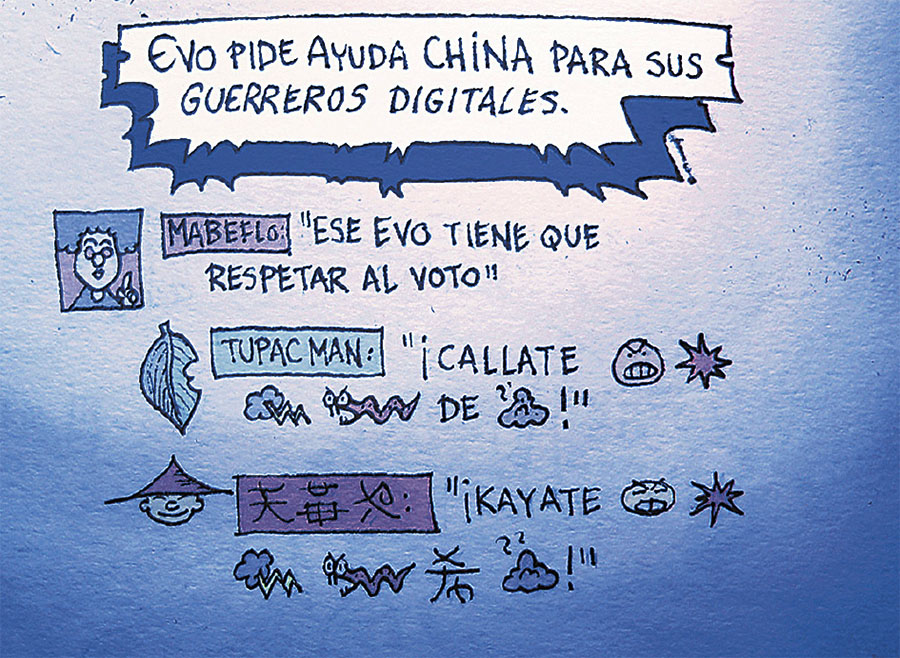 EVO PIDE AYUDA CHINA PARA SUS
GUERREROS DIGITALES.
MABEFLO: "ESE EVO TIENE QUE
RESPETAR AL VOTO"
TUPAC MAN: "¡CALLATE
DE !"
"¡KAYATE
!"